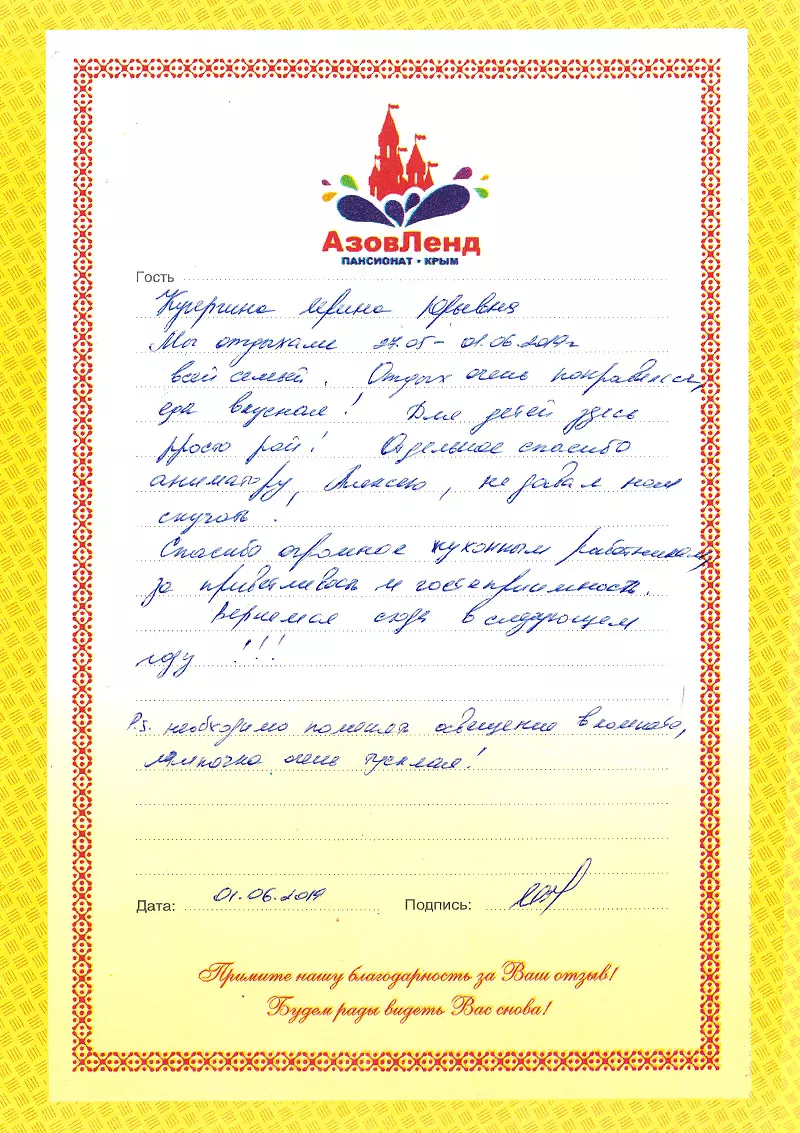 АзовЛенд
ПАНСИОНАТ • КРЫМ
Гость
Кучергина Ирина Юрьевна
Мы отдыхали 27.05 – 01.06.2019г
всей семьей. Отдых очень понравился,
еда вкусная! Для детей здесь
просто рай! Отдельное спасибо
аниматору, Алексею, не давал нам
скучать.
Спасибо огромное кухонным работникам,
за приветливость и гостеприимность.
Вернемся сюда в следующем
году !!!
P.S. необходимо поменять освещение в комнате,
лампочка очень тусклая!
Дата: 01.06.2019 Подпись:
Примите нашу благодарность за Ваш отзыв!
Будем рады видеть Вас снова!